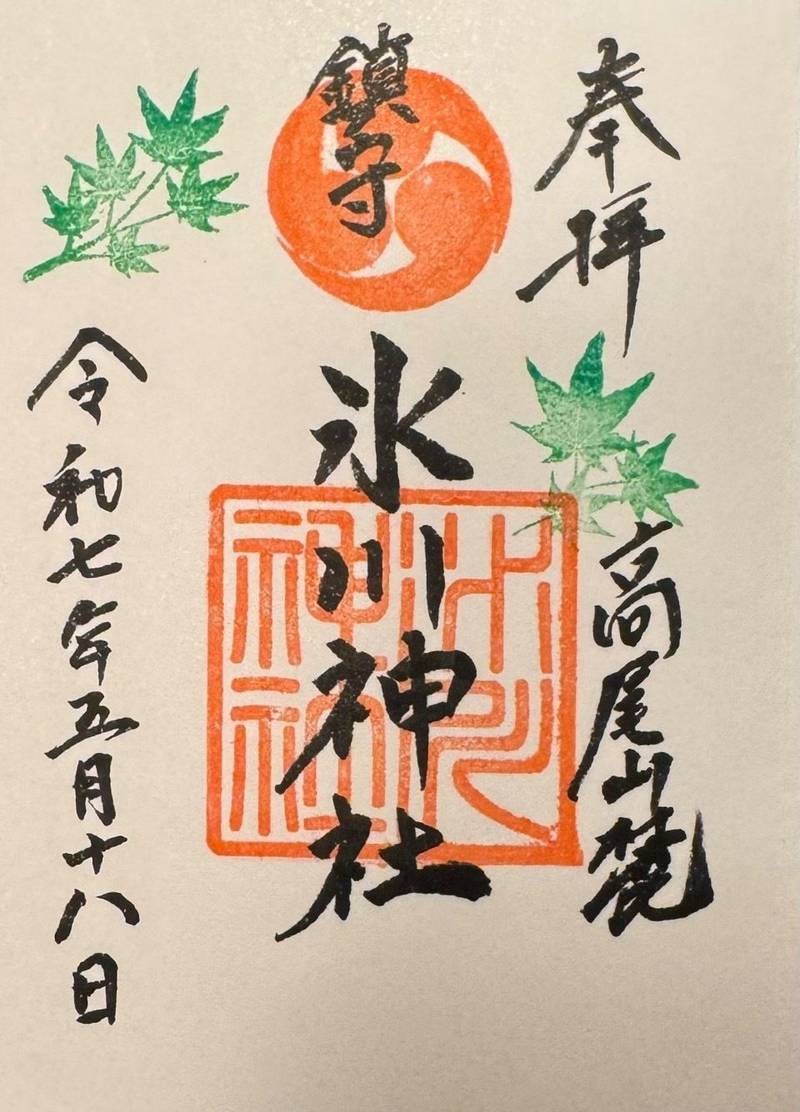 奉拝
高尾山麓
鎮守
氷川神社
氷川神社
令和七年五月十八日